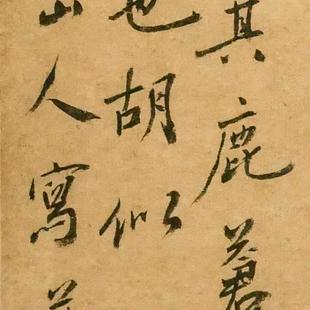 其鹿著
也胡似
山人寫